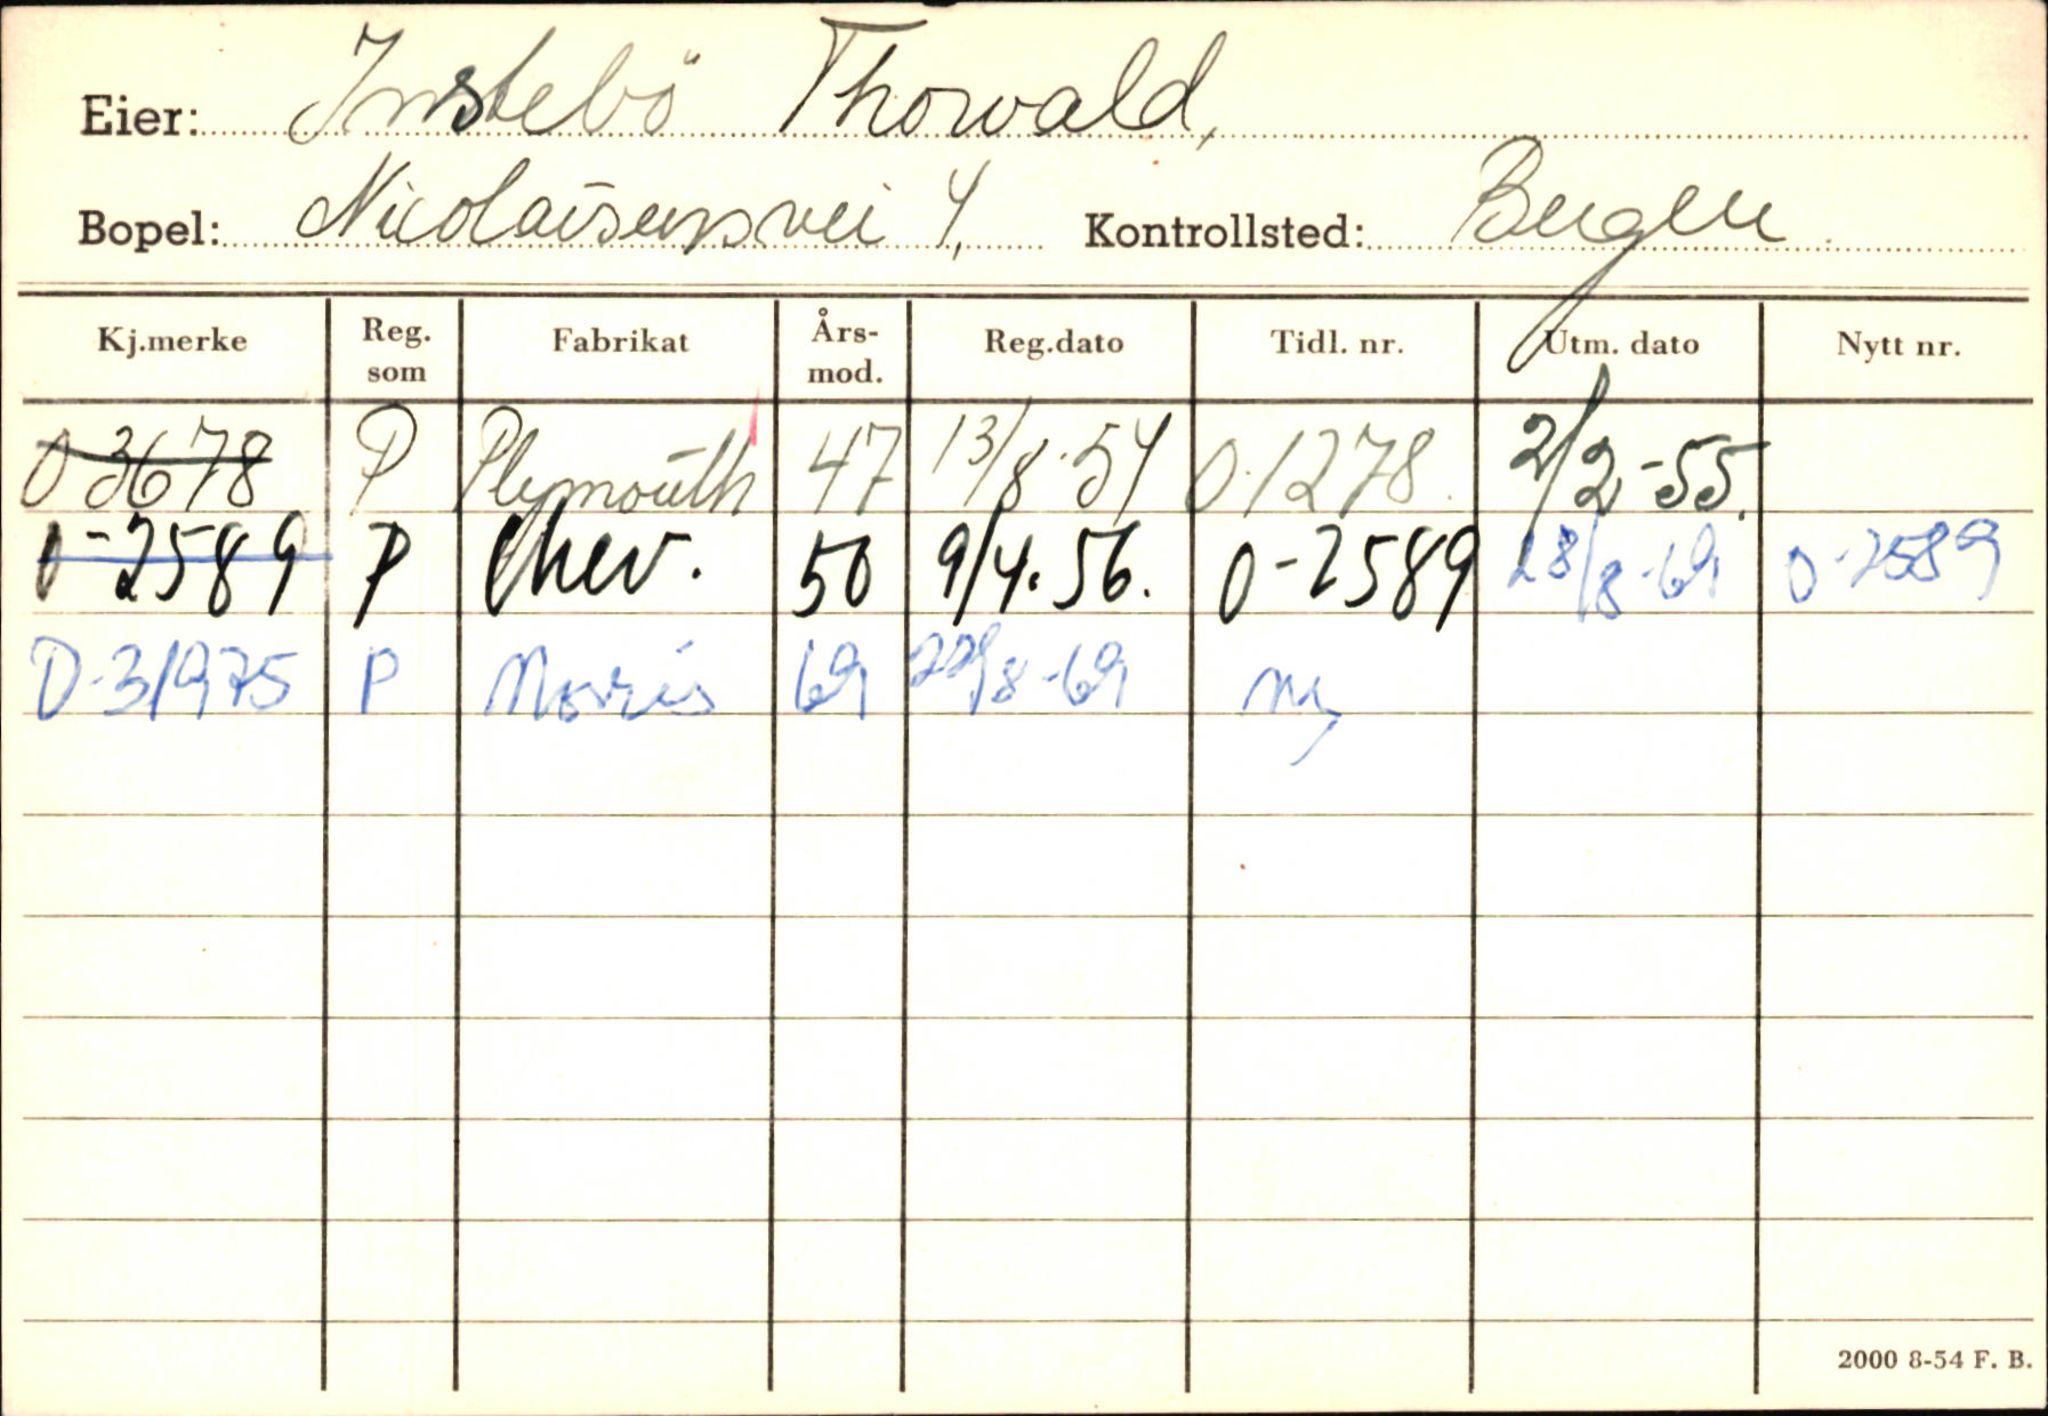 Eier: Instebö Thorvald,
Bopel: Nicolaisensvei 4. Kontrollsted: Bergen
Kj.merke Reg. som Fabrikat Års-mod. Reg.dato Tidl. nr. Utm. dato Nytt nr.
O-3678 P Plymouth 47 13/8-54 O-1278 2/2-55.
O-2589 P Chev. 50 9/4.56. O-2589 28/8-69 O-2589
O-31975 P Morris 69 29/8-69 ny
2000 8-54 F. B.